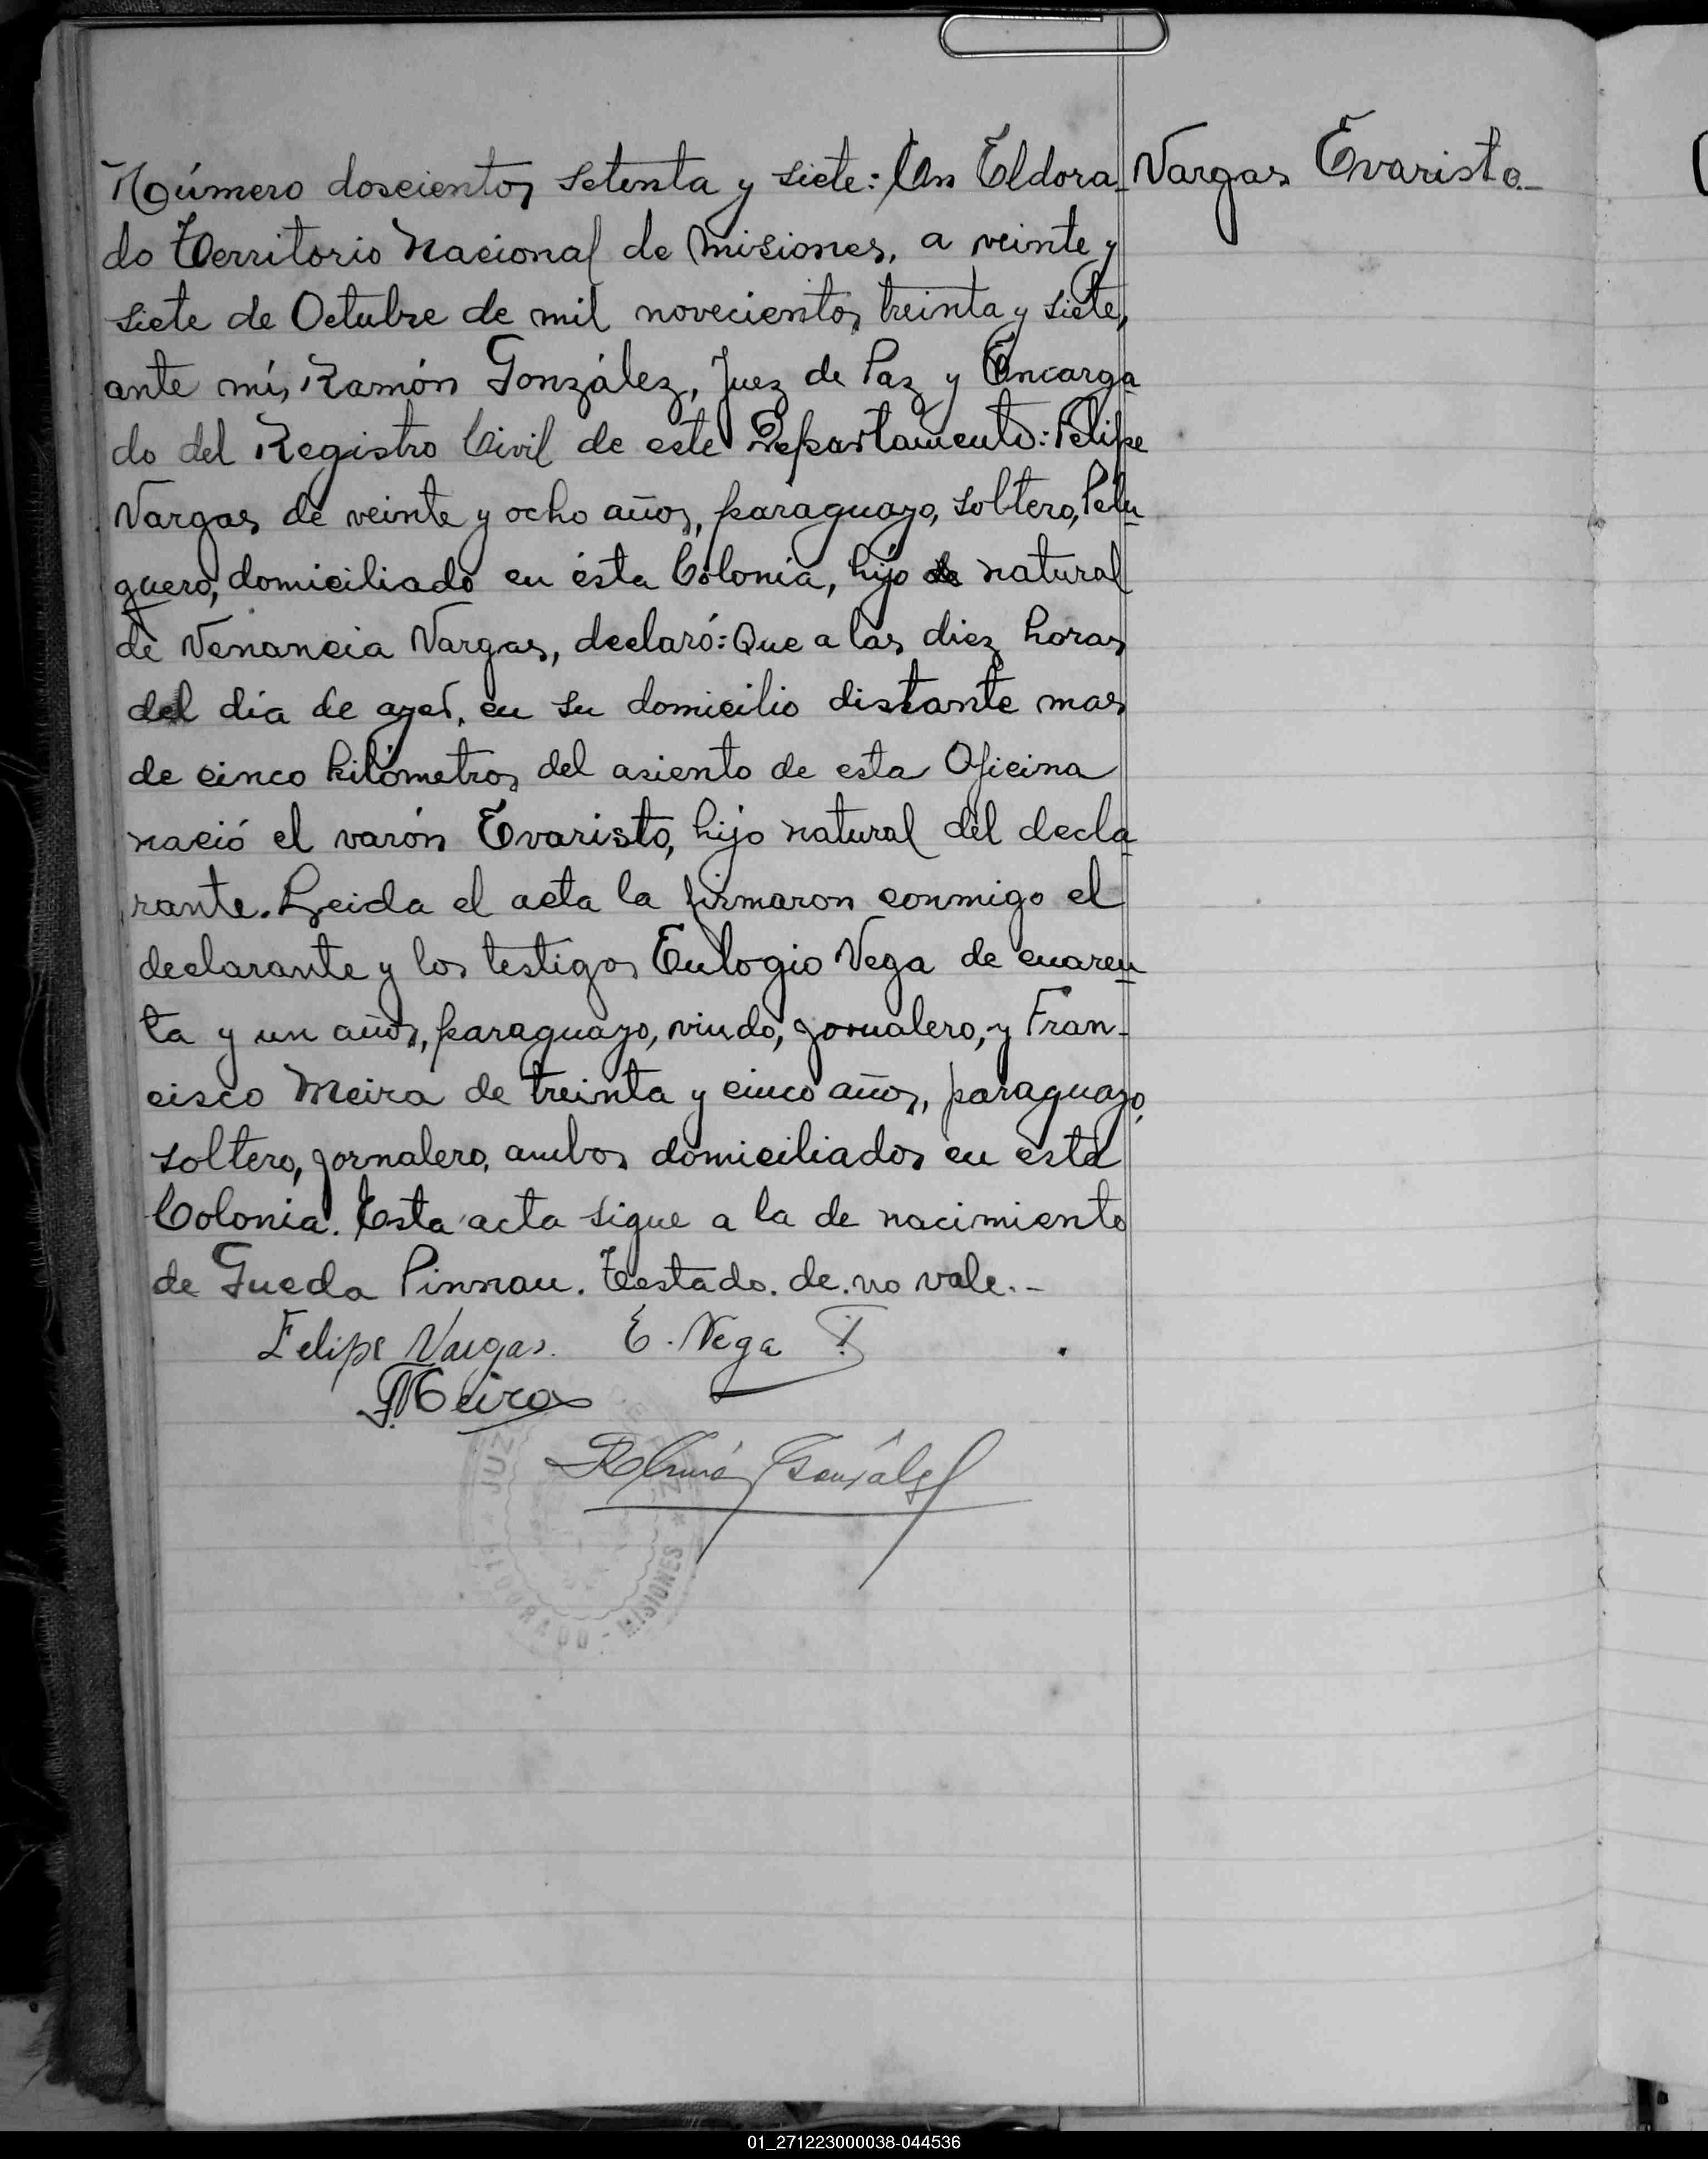 Número doscientos setenta y siete: En Eldora-
Vargas Evaristo.-
do Territorio Nacional de Misiones, a veinte y
siete de Octubre de mil novecientos treinta y siete,
ante mí, Ramón González, Juez de Paz y Encarga
do del Registro Civil de este Departamento: Felipe
Vargas de veinte y ocho años, paraguayo, soltero, Pelu-
quero, domiciliado en ésta Colonia, hijo de natural
de Venancia Vargas, declaró: Que a las diez horas
del día de ayer, en su domicilio distante mas
de cinco kilómetros del asiento de esta Oficina
nació el varón Evaristo, hijo natural del decla-
rante. Leida el acta la firmaron conmigo el
declarante y los testigos Eulogio Vega de cuaren-
ta y un años, paraguayo, viudo, jornalero, y Fran-
cisco Meira de treinta y cinco años, paraguayo,
soltero, jornalero, ambos domiciliados en esta
Colonia. Esta acta sigue a la de nacimiento
de Gueda Pinnau. Testado. de. no vale.-
Felipe Vargas. E. Vega
F. Meira
Ramón González
JUZ
ELDORADO - MISIONES
01_271223000038-044536